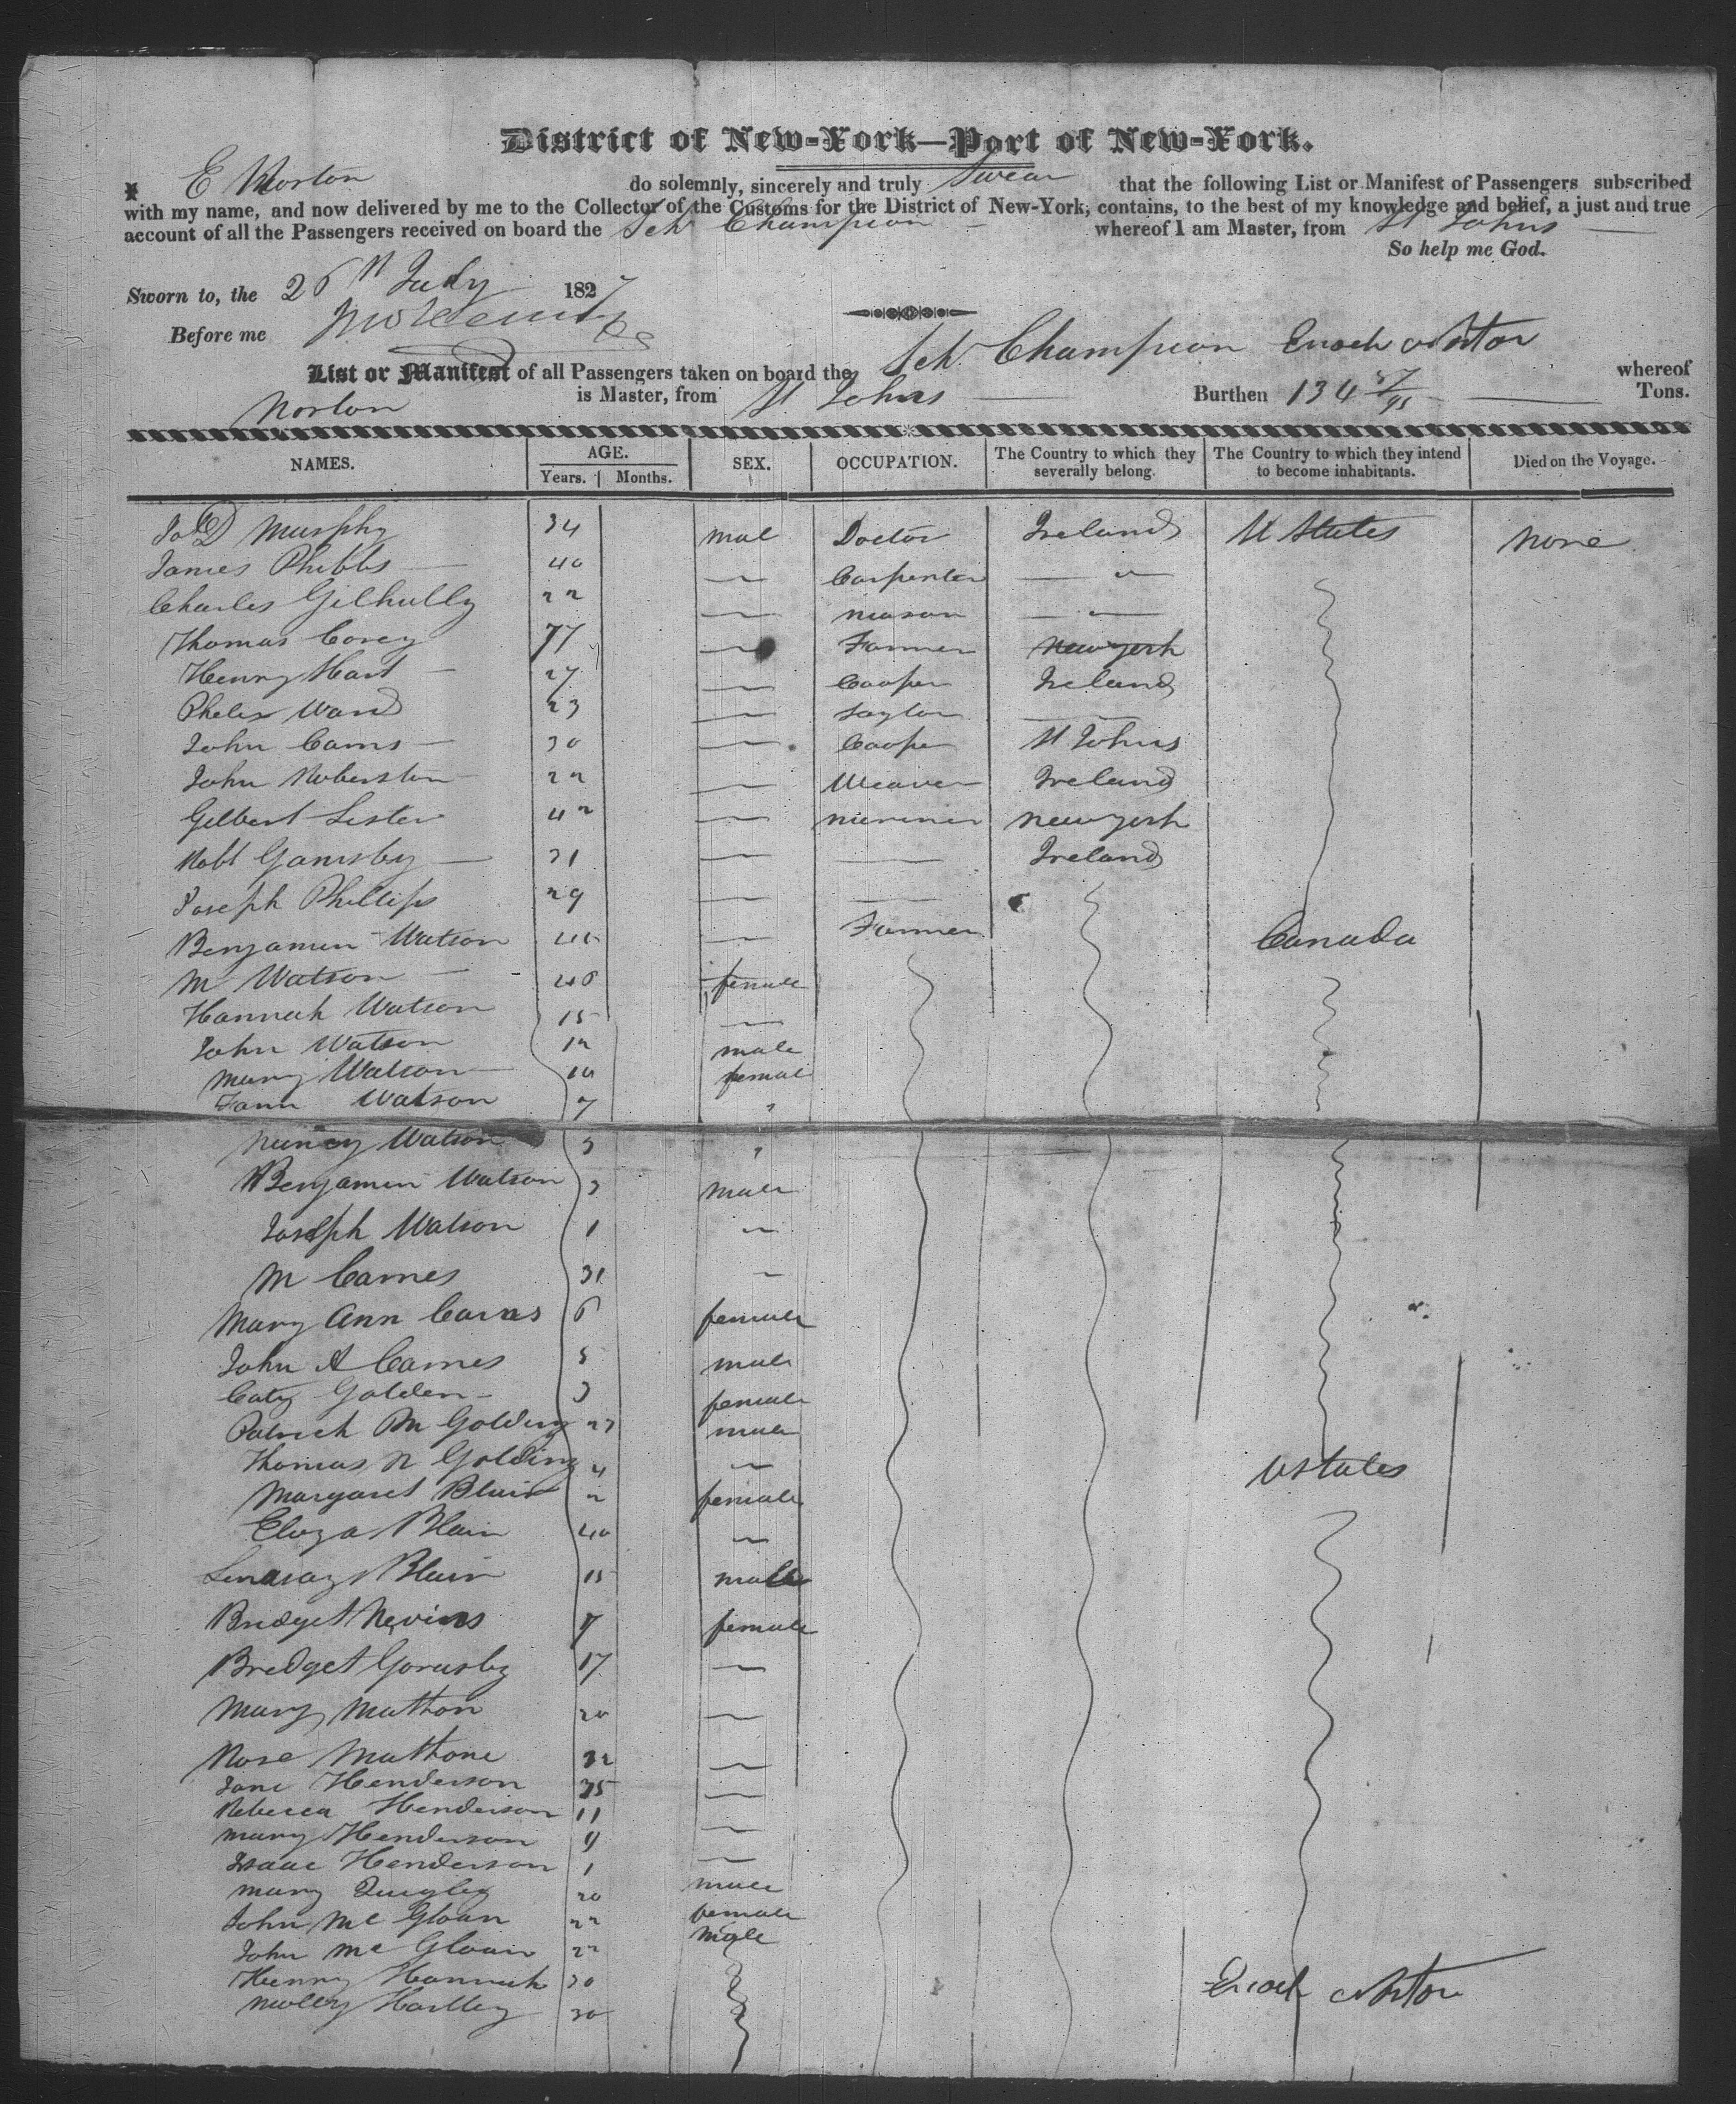 District of New-York—Port of New-York.
I E Norton do solemnly, sincerely and truly Swear that the following List or Manifest of Passengers subscribed
with my name, and now delivered by me to the Collector of the Customs for the District of New-York, contains, to the best of my knowledge and belief, a just and true
account of all the Passengers received on board the Sch Champion whereof I am Master, from St Johns
So help me God.
Sworn to, the 26th July 1827
Before me
List or Manifest of all Passengers taken on board the Sch Champion Enoch Norton whereof
Norton is Master, from St Johns Burthen 134 57/95 Tons.
NAMES. AGE. Years. Months. SEX. OCCUPATION. The Country to which they severally belong. The Country to which they intend to become inhabitants. Died on the Voyage.
Murphy 34 mal Doctor Ireland U States None
James Phibbs 40 — Carpenter — "
Charles Gilhully 22 — mason — "
Thomas Corey 77 — Farmer newyork
Henry Hart 27 — Cooper Ireland
Phelix Ward 23 — Taylor —
John Carns 30 — Cooper St Johns
John Roberston 22 — Weaver Ireland
Gilbert Lister 42 — mariner newyork
Robt Gamsby 31 — — Ireland
Joseph Phillips 29 — —
Benjamin Watson — Farmer Canada
M Watson 40 female
Hannah Watson 15 —
John Watson 12 male
Mary Watson 10 female
Watson 7 "
Nancy Watson 5 "
Benjamin Watson 3 male
Joseph Watson 1 "
M Carnes 31 "
Mary Ann Carnes 6 female
John A Carnes 5 male
Caty Golden 3 female
Patrick M Golding 27 male
Thomas N Golding 4 — Ustates
Margaret Blair 2 female
Eliza Blair 40 —
Lindsay Blair 15 male
Bridget Nevins 7 female
Bredget Gormsby 17 —
Mary Matthon 20 —
Rose Matthone 32 —
Jane Henderson 35 —
Rebecca Henderson 11
Mary Henderson 9 —
Isaac Henderson 1 —
Mary Quigley 20 male
John Mc Gloan 22 female
John Mc Gloan 22 male
Henry Hannah 30
Hartley 30
Enoch Norton